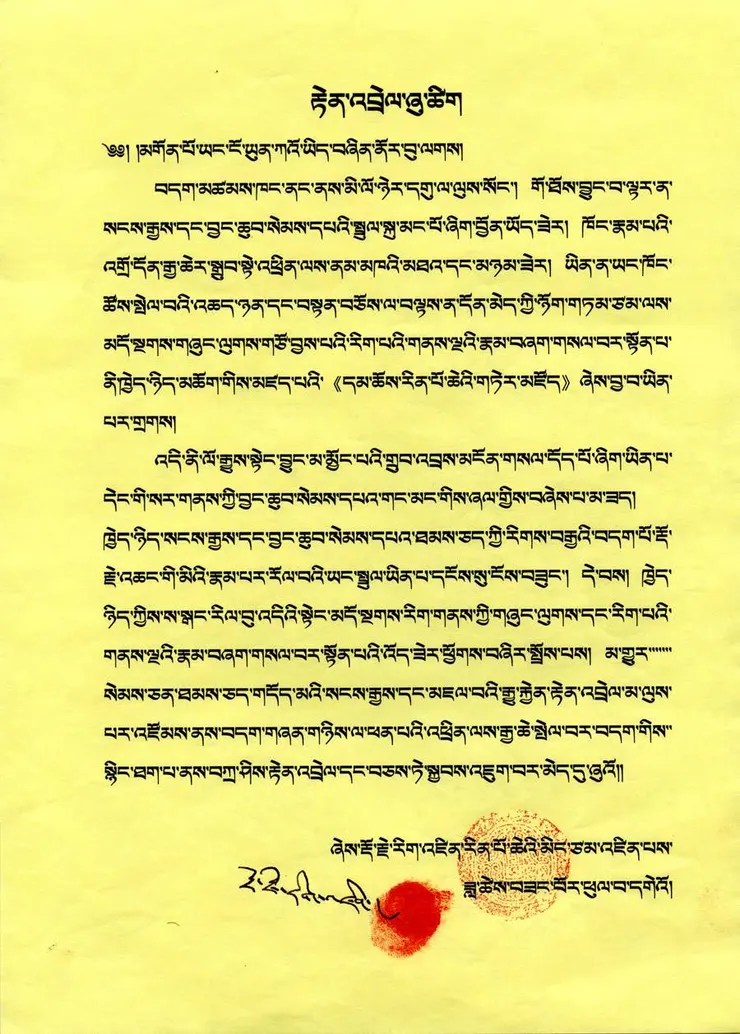 རྟེན་འབྲེལ་ཞུ་ཚིག
༄༅། །མགོན་པོ་ཡང་ངོ་ཡུན་ཀའོ་ཡིད་བཞིན་ནོར་བུ་ལགས།
བདག་མཚམས་ཁང་ནང་ནས་མི་ལོ་ཉེར་དགུ་ལ་ལུས་སོང་། གོ་ཐོས་བྱུང་བ་ལྟར་ན་
སངས་རྒྱས་དང་བྱང་ཆུབ་སེམས་དཔའི་སྤྲུལ་སྐུ་མང་པོ་ཞིག་བྱོན་ཡོད་ཟེར། ཁོང་རྣམ་པའི་
འགྲོ་དོན་རྒྱ་ཆེར་སྒྲུབ་སྟེ་འཕྲིན་ལས་ནམ་མཁའི་མཐའ་དང་མཉམ་ཟེར། ཡིན་ན་ཡང་ཁོང་
ཚོས་སྤེལ་བའི་འཆད་ཉན་དང་བསྟན་བཅོས་ལ་བལྟས་ན་དོན་མེད་ཀྱི་ཉོག་གཏམ་ཙམ་ལས་
མདོ་སྔགས་གཞུང་ལུགས་གཙོ་བྱས་པའི་རིག་པའི་གནས་ལྔའི་རྣམ་བཞག་གསལ་བར་སྟོན་པ་
ནི་ཁྱེད་ཉིད་མཆོག་གིས་མཛད་པའི་《དམ་ཆོས་རིན་པོ་ཆེའི་གཏེར་མཛོད》ཞེས་བྱ་བ་ཡིན་
པར་གྲགས།
འདི་ནི་ལོ་རྒྱུས་སྟེང་བྱུང་མ་མྱོང་པའི་གྲུབ་འབྲས་མངོན་གསལ་དོད་པོ་ཞིག་ཡིན་པ་
དེང་གི་སར་གནས་ཀྱི་བྱང་ཆུབ་སེམས་དཔའ་གང་མང་གིས་ཞལ་གྱིས་བཞེས་པ་མ་ཟད།
ཁྱེད་ཉིད་སངས་རྒྱས་དང་བྱང་ཆུབ་སེམས་དཔའ་ཐམས་ཅད་ཀྱི་རིགས་བརྒྱའི་བདག་པོ་རྡོ་
རྗེ་འཆང་གི་མིའི་རྣམ་པར་རོལ་བའི་ཡང་སྤྲུལ་ཡིན་པ་དངོས་སུ་ངོས་བཟུང་། དེ་བས། ཁྱེད་
ཉིད་ཀྱིས་ས་སྒང་རིལ་བུ་འདིའི་སྟེང་མདོ་སྔགས་རིག་གནས་ཀྱི་གཞུང་ལུགས་དང་རིག་པའི་
གནས་ལྔའི་རྣམ་བཞག་གསལ་བར་སྟོན་པའི་འོད་ཟེར་ཕྱོགས་བཞིར་སྤྲོས་པས། མ་གྱུར
སེམས་ཅན་ཐམས་ཅད་གདོད་མའི་སངས་རྒྱས་དང་མཇལ་བའི་རྒྱུ་རྐྱེན་རྟེན་འབྲེལ་མ་ལུས་
པར་འཛོམས་ནས་བདག་གཞན་གཉིས་ལ་ཕན་པའི་འཕྲིན་ལས་རྒྱ་ཆེ་སྤེལ་བར་བདག་གིས
སྙིང་ཐག་པ་ནས་བཀྲ་ཤིས་རྟེན་འབྲེལ་དང་བཅས་ཏེ་སྐྱབས་འཇུག་བར་མེད་དུ་ཞུའོ།།
ཞེས་རྡོ་རྗེ་རིག་འཛིན་རིན་པོ་ཆེའི་མིང་ཙམ་འཛིན་པས་
ཟླ་ཚེས་བཟང་པོར་ཕུལ་བ་དགེའོ།